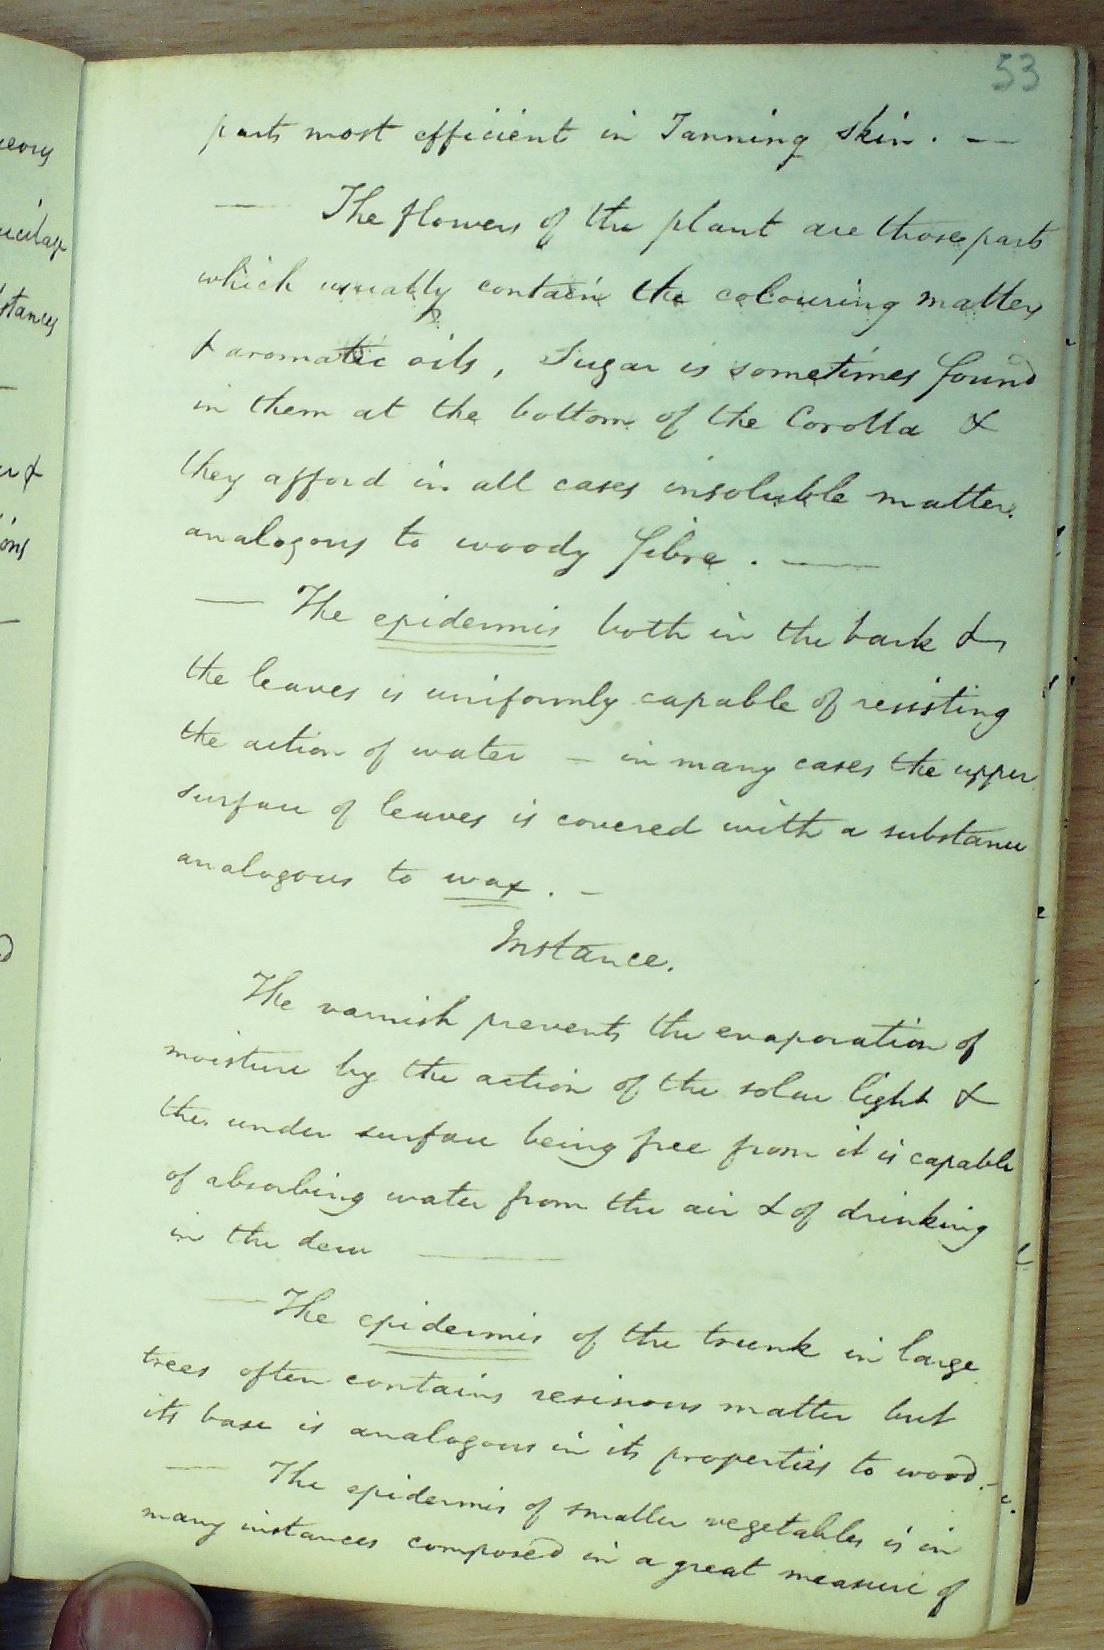 53
parts most efficient in Tanning skin. — —
— The flowers of the plant are those parts
which usually contain the colouring matter
& aromatic oils, Sugar is sometimes found
in them at the bottom of the Corolla &
they afford in all cases insoluble matter
analogous to woody fibre. —
— The epidermis both in the bark &
the leaves is uniformly capable of resisting
the action of water – in many cases the upper
surface of leaves is covered with a substance
analogous to wax. –
Instance.
The varnish prevents the evaporation of
moisture by the action of the solar light &
the under surface being free from it is capable
of absorbing water from the air & of drinking
in the dew —
— The epidermis of the trunk in large
trees often contains resinous matter but
its base is analogous in its properties to wood. –
— The epidermis of smaller vegetables is in
many instances composed in a great measure of